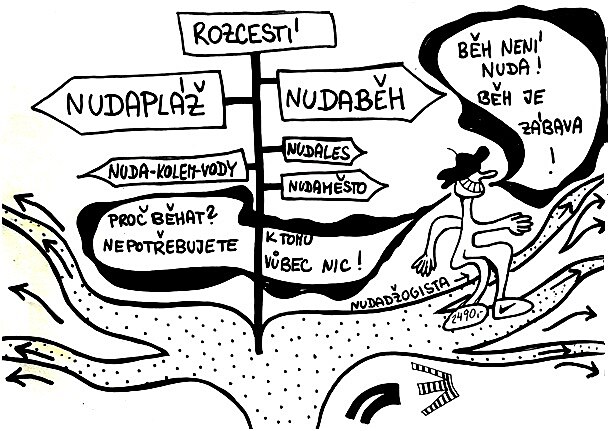 ROZCESTÍ
NUDAPLÁŽ
NUDABĚH
NUDALES
NUDA-KOLEM-VODY
NUDAMĚSTO
BĚH NENÍ
NUDA!
BĚH JE
ZÁBAVA
!
PROČ BĚHAT?
NEPOTŘEBUJETE
K TOMU
VŮBEC NIC!
NUDADŽOGISTA
2490,-